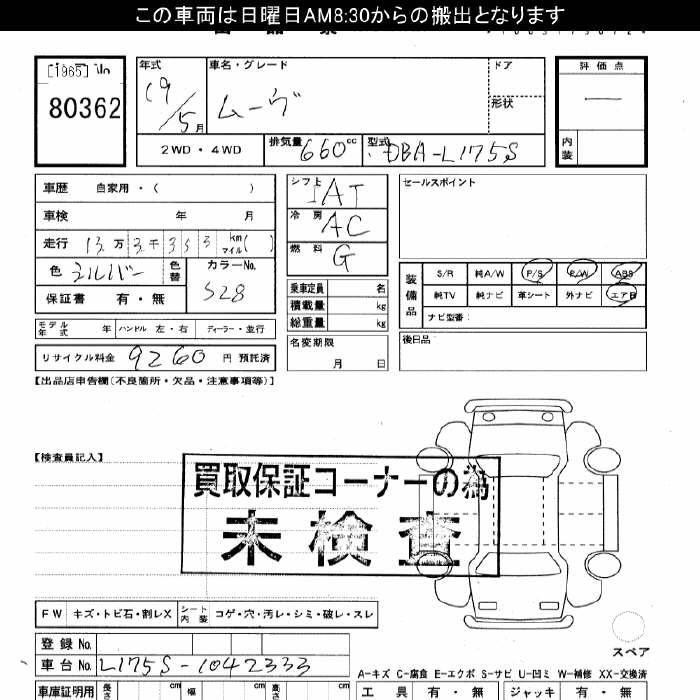 この車両は日曜日AM8:30からの搬出となります
[1965]
80362
年式 19/5月
車名・グレード ムーヴ
ドア
形状
評価点 —
内装
2WD・4WD
排気量 660cc
型式 DBA-L175S
車歴 自家用・( )
車検 年 月
走行 13万3千353 km マイル( )
色 シルバー 色替
カラーNo. S28
保証書 有・無
シフト IAT
冷房 AC
燃料 G
乗車定員 名
積載量 kg
総重量 kg
セールスポイント
装備品
S/R 純A/W P/S P/W ABS
純TV 純ナビ 革シート 外ナビ エアB
ナビ型番:
モデル年式 年 ハンドル 左・右 ディーラー・並行
名変期限 月 日
後日品
リサイクル料金 9260 円 預託済
【出品店申告欄(不良箇所・欠品・注意事項等)】
【検査員記入】
買取保証コーナーの為
未検査
FW キズ・トビ石・割レX シート内装 コゲ・穴・汚レ・シミ・破レ・スレ
スペア
登録No.
車台No. L175S-1042333
A-キズ C-腐食 E-エクボ S-サビ U-凹ミ W-補修 XX-交換済
車庫証明用 長さ cm 幅 cm 高さ cm
工具 有・無 ジャッキ 有・無